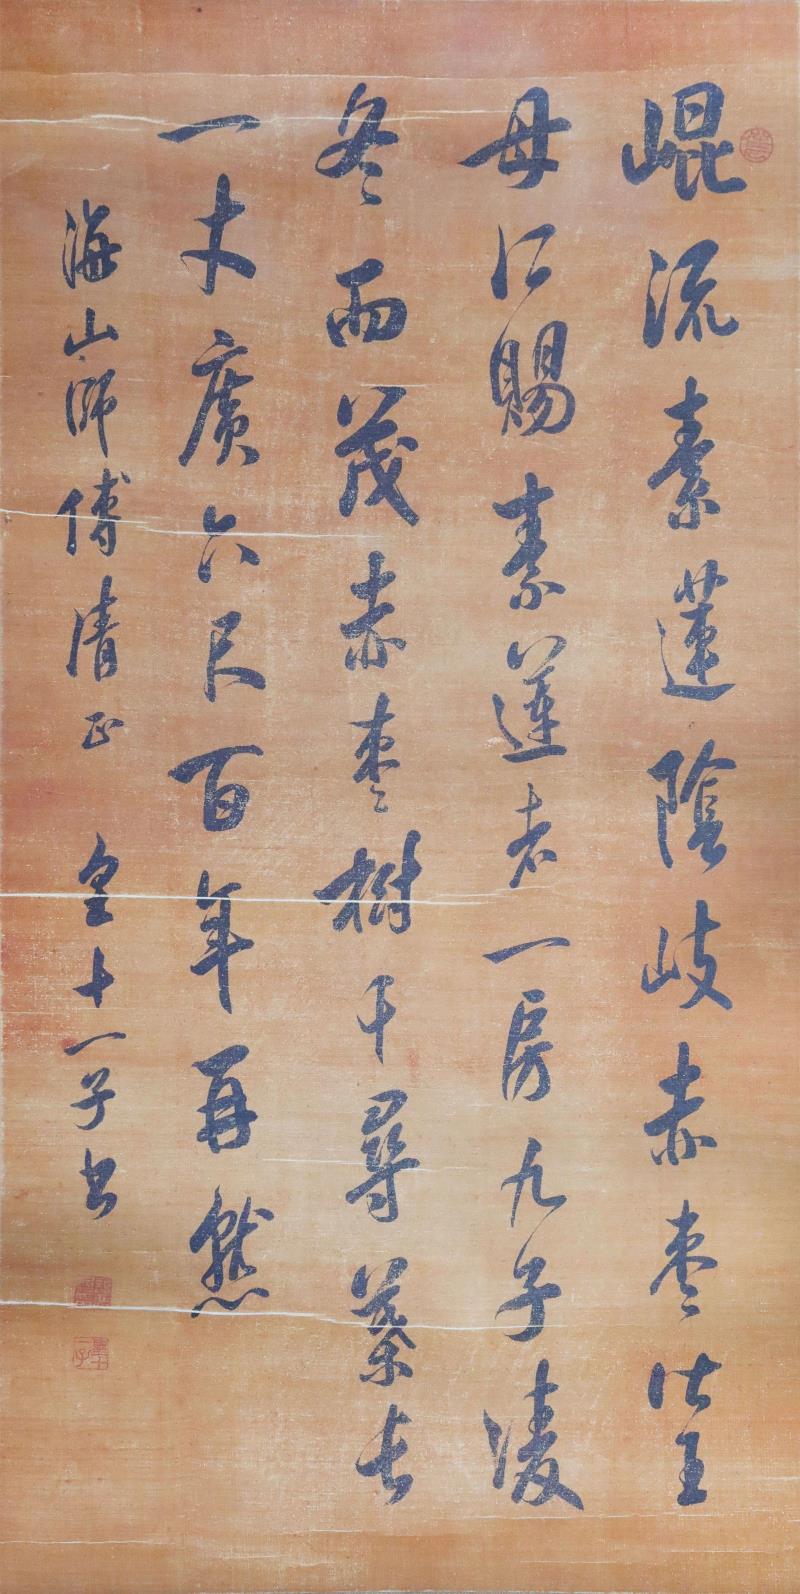 崐流素蓮陰岐赤棗皆王
母所賜素蓮者一房九子凌
冬而茂赤棗樹千尋葉長
一丈廣六尺百年再熟
海山師傅清正 皇十一子書